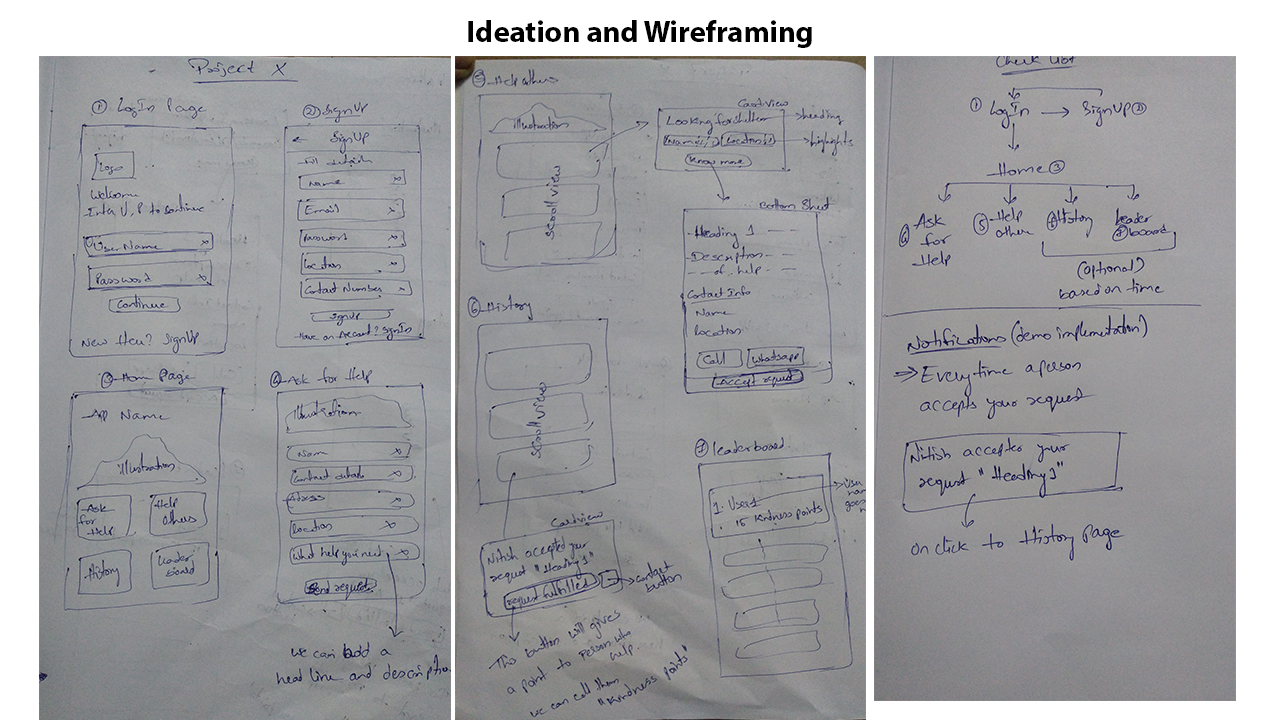 Ideation and Wireframing
Project X
① LogIn Page
Logo
Welcome
Enter U, P to continue
User Name x
Password x
Continue
New Here? SignUp
② SignUp
← SignUp
Fill details
Name x
Email x
Password x
Location x
Contact Number x
SignUp
Have an Account? SignIn
③ Hom Page
App Name
Illustration
Ask
for
Help
Help
Others
History
Leader
board
④ Ask for Help
Illustration
Nam x
Contact details x
Adress x
location x
What help you need x
Send request
we can add a
head line and description
⑤ Help others
Illustration
Scroll view
Cardview
Looking for shelter
Name Location
Know more
heading
highlights
Bottom Sheet
Heading 1
Description
of help
Contact Info
Name
location
Call Whatsapp
Accept request
⑥ History
Scroll view
Cardview
Nitish accepted your
request "Heading1"
request fulfilled
contact
button
This button will gives
a point to person who
help.
we can call them
"kindness points"
⑦ leaderboard
1. User1
15 kindness points
User
name
goes
Check list
① LogIn → SignUp ②
Home ③
④ Ask
for
Help
⑤ Help
other
⑥ History
leader
⑦ board
(optional)
based on time
Notifications (demo implementation)
⇒ Every time a person
accepts your request
Nitish accepter your
request "Heading1"
on click to History page